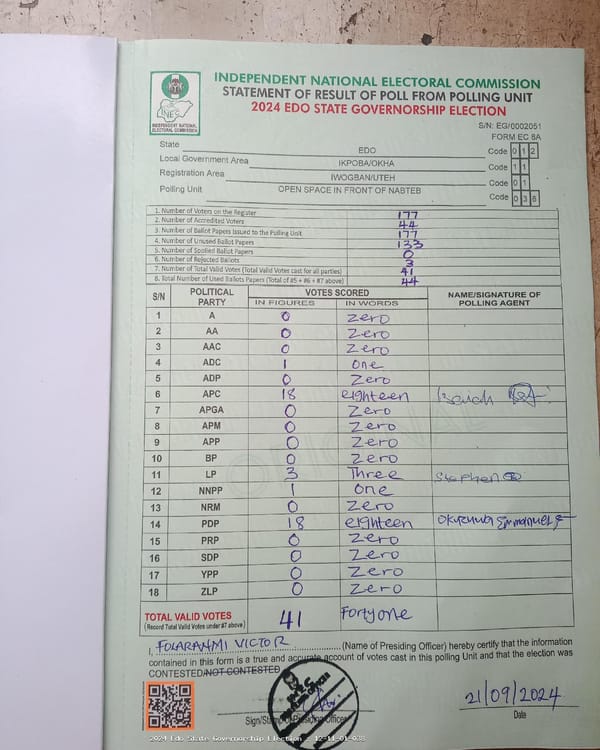 INDEPENDENT NATIONAL ELECTORAL COMMISSION
STATEMENT OF RESULT OF POLL FROM POLLING UNIT
2024 EDO STATE GOVERNORSHIP ELECTION
INEC
INDEPENDENT NATIONAL ELECTORAL COMMISSION
S/N: EG/0002051
FORM EC 8A
State EDO Code 0 1 2
Local Government Area IKPOBA/OKHA Code 1 1
Registration Area IWOGBAN/UTEH Code 0 1
Polling Unit OPEN SPACE IN FRONT OF NABTEB Code 0 3 6
1. Number of Voters on the Register 177
2. Number of Accredited Voters 44
3. Number of Ballot Papers Issued to the Polling Unit 177
4. Number of Unused Ballot Papers 133
5. Number of Spoiled Ballot Papers 0
6. Number of Rejected Ballots 3
7. Number of Total Valid Votes (Total Valid Votes cast for all parties) 41
8. Total Number of Used Ballots Papers (Total of #5 + #6 + #7 above) 44
S/N POLITICAL PARTY VOTES SCORED NAME/SIGNATURE OF POLLING AGENT
IN FIGURES IN WORDS
1 A 0 Zero
2 AA 0 Zero
3 AAC 0 Zero
4 ADC 1 one
5 ADP 0 Zero
6 APC 18 eighteen
7 APGA 0 Zero
8 APM 0 Zero
9 APP 0 Zero
10 BP 0 Zero
11 LP 3 Three Stephen
12 NNPP 1 one
13 NRM 0 Zero
14 PDP 18 eighteen Emmanuel
15 PRP 0 Zero
16 SDP 0 Zero
17 YPP 0 Zero
18 ZLP 0 Zero
TOTAL VALID VOTES 41 Forty one
(Record Total Valid Votes under #7 above)
I, FOLARANMI VICTOR (Name of Presiding Officer) hereby certify that the information
contained in this form is a true and accurate account of votes cast in this polling Unit and that the election was
CONTESTED/NOT CONTESTED
21/09/2024
Sign/Stamp of Presiding Officer Date
2024 Edo State Governorship Election - 12-11-01-038